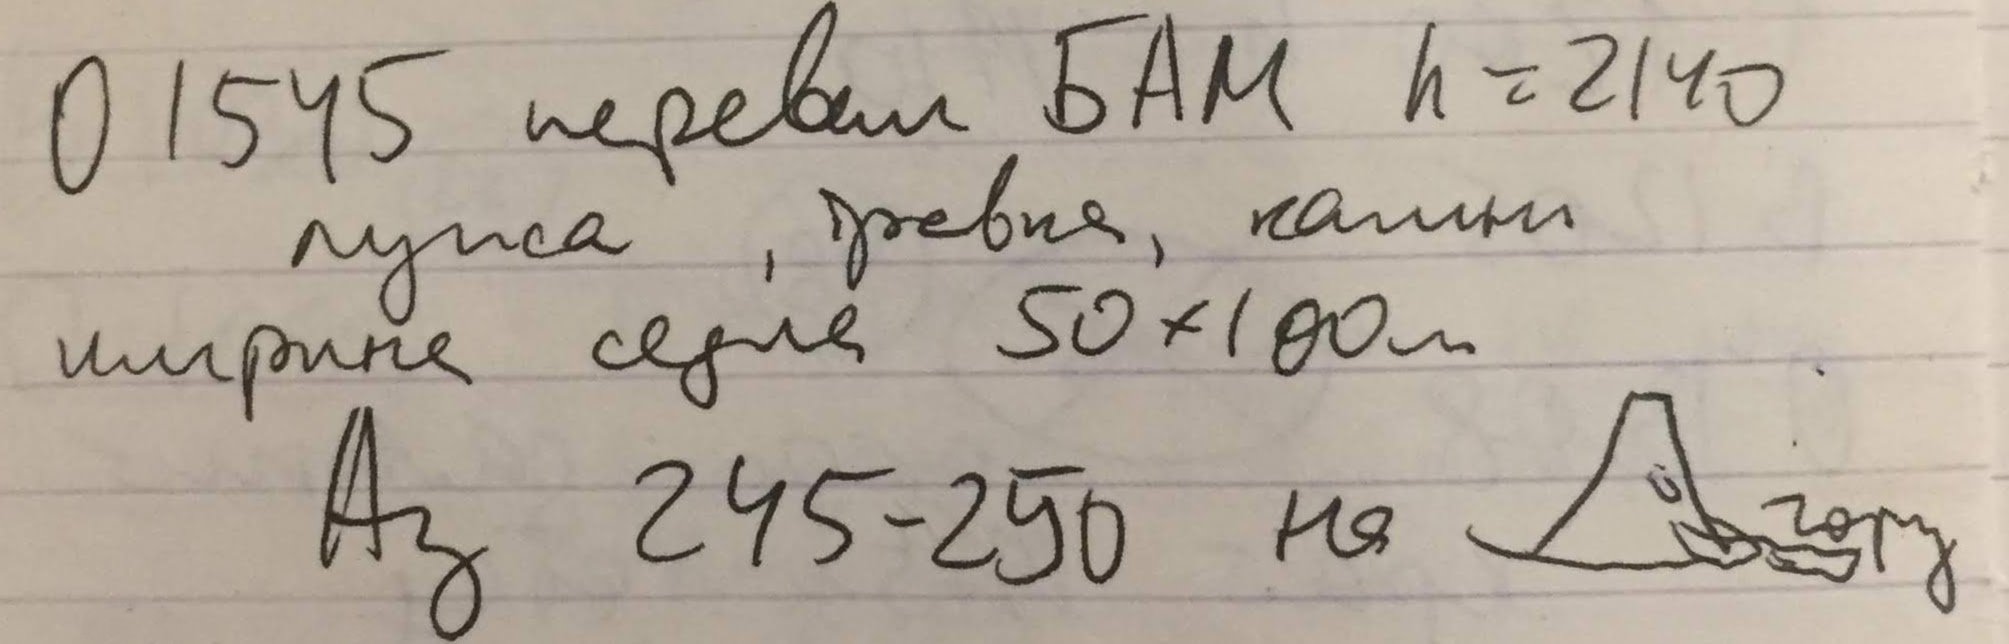 О 1545 перевал БАМ h=2140
луна, травка, камни
ширина седла 50×100м
Аз 245-250 на гору